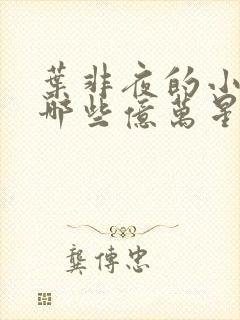 葉非夜的小
哪些億萬星
龔傳忠